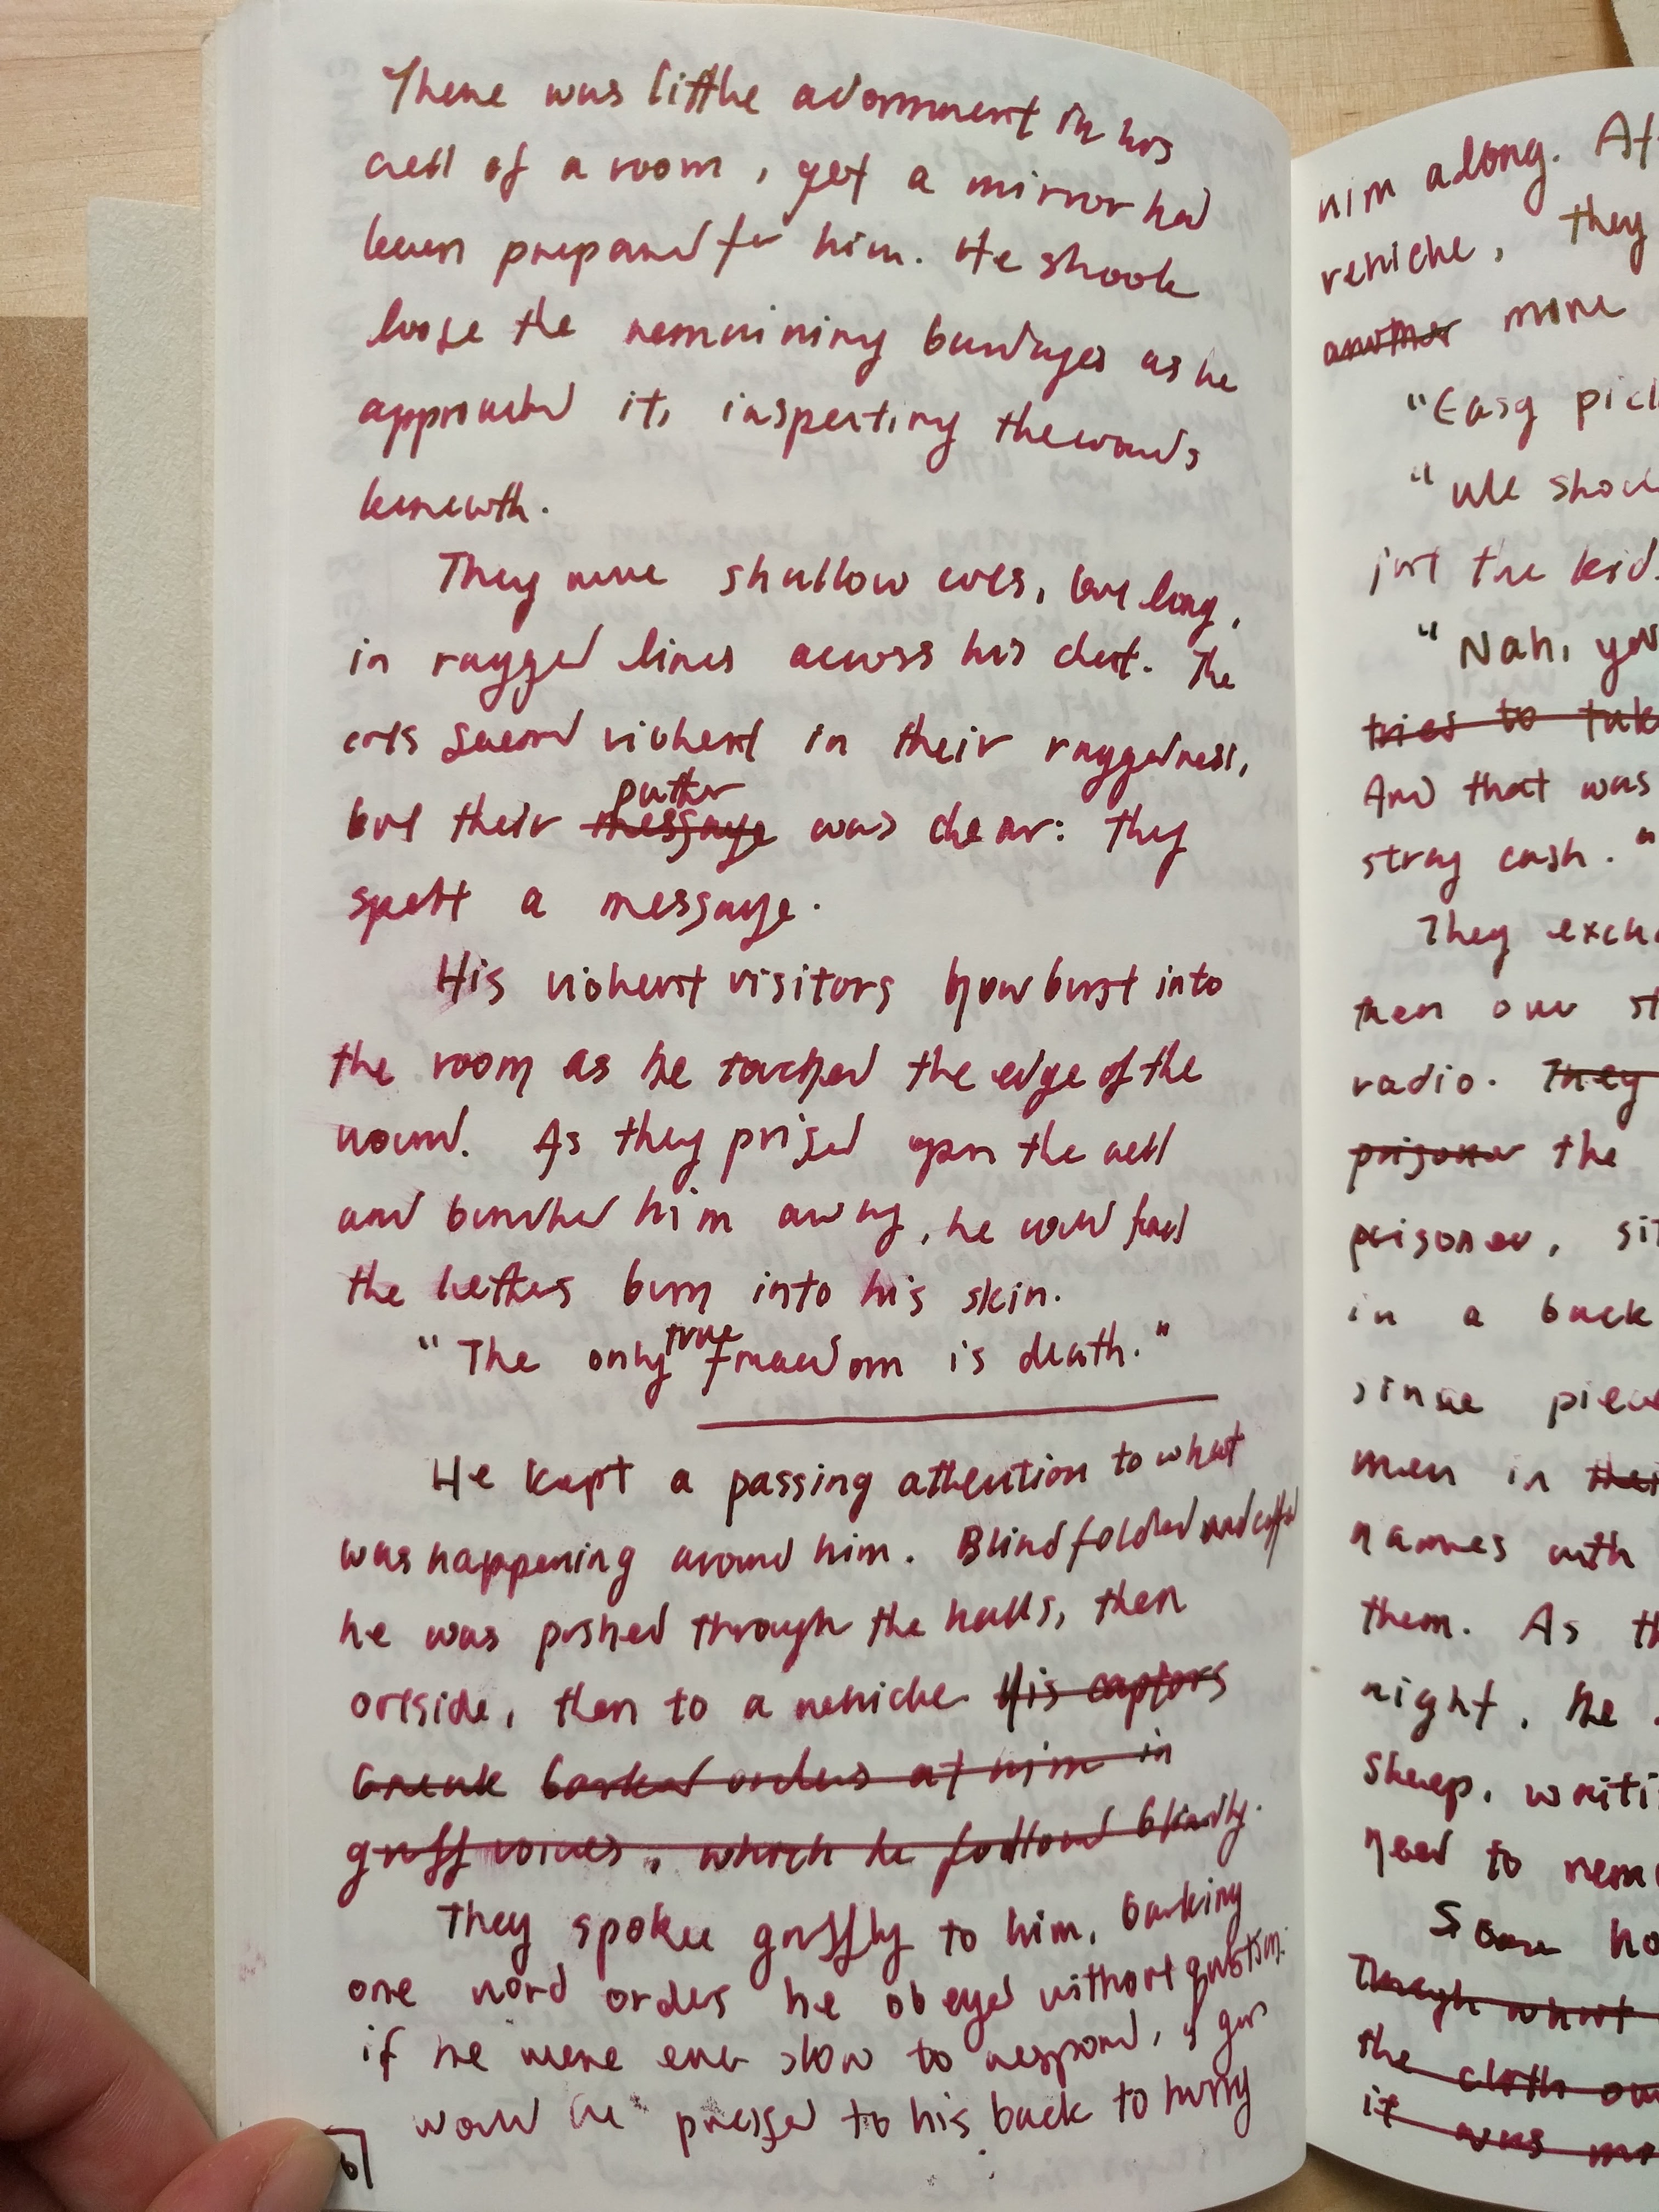 There was little adornment in his
cell of a room, yet a mirror had
been prepared for him. He shook
loose the remaining bandages as he
approached it, inspecting the words
beneath.
They were shallow cuts, but long,
in ragged lines across his chest. The
cuts seemed violent in their raggedness,
but their ~~message~~ patter was clear: they
spelt a message.
His violent visitors now burst into
the room as he touched the edge of the
wound. As they prised open the cell
and bundled him away, he could feel
the letters burn into his skin.
"The only true freedom is death."
He kept a passing attention to what
was happening around him. Blindfolded and cuffed
he was pushed through the halls, then
outside, then to a vehicle. ~~His captors~~
~~barked orders at him in~~
~~gruff voices, which he followed blindly.~~
They spoke gruffly to him, barking
one word orders he obeyed without question.
if he were ever slow to respond, a gun
would be pressed to his back to hurry
6
him along. Af
vehicle, they
~~another~~ more
"Easy pic
"We shou
just the kid.
"Nah, you
~~tries to tak~~
And that was
stray cash."
They exch
then our st
radio. ~~They~~
~~prisoner~~ the
prisoner, sit
in a back
since piec
men in ~~thei~~
names with
them. As th
night, he
sheep, waiti
need to rem
Some ho
~~Though what~~
~~the cloth ov~~
~~it was mo~~